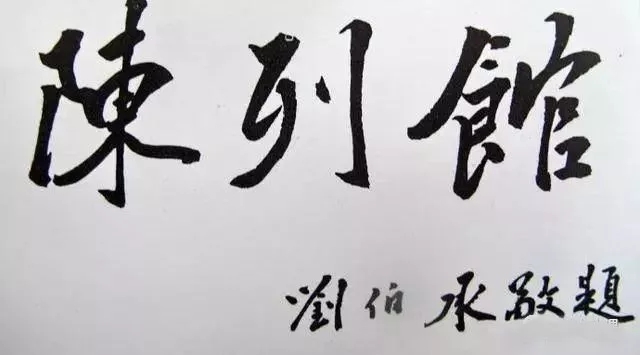 陳列館
劉伯承敬題